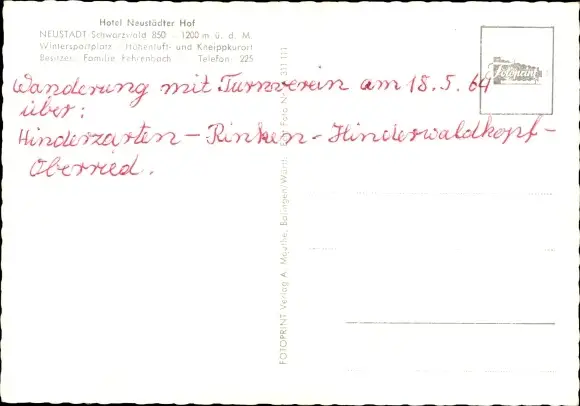 Hotel Neustädter Hof
NEUSTADT-Schwarzwald 850 - 1200 m ü. d. M.
Wintersportplatz - Höhenluft- und Kneippkurort
Besitzer: Familie Fehrenbach Telefon: 225
Fotoprint
Wanderung mit Turnverein am 18.5.64
über:
Hinderzarten - Rinken - Hinderwaldkopf -
Oberried.
FOTOPRINT Verlag A. Mauthe, Balingen/Württ. Foto N 331 111